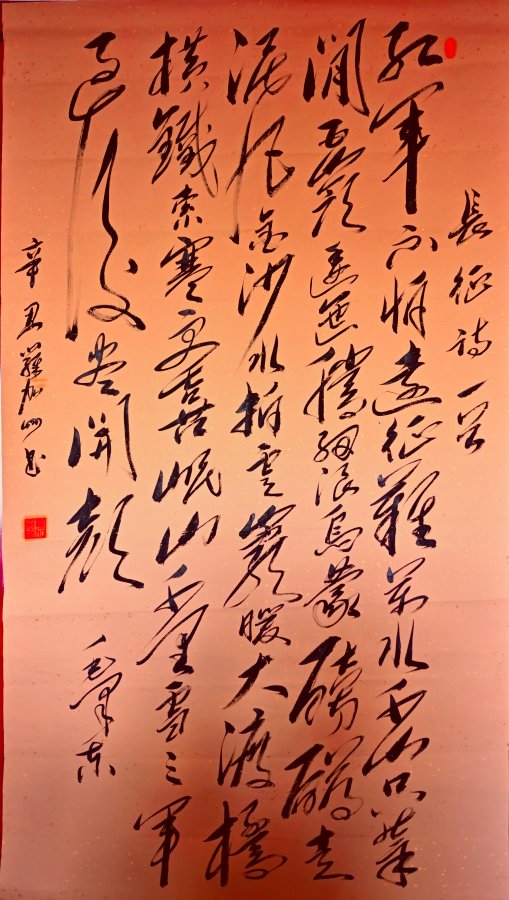 長征詩一首
紅軍不怕遠征難萬水千山只等
閒五嶺逶迤騰細浪烏蒙磅礴走
泥丸金沙水拍雲巖暖大渡橋
橫鐵索寒更喜岷山千里雪三軍
過後盡開顏
毛澤東
辛丑 書